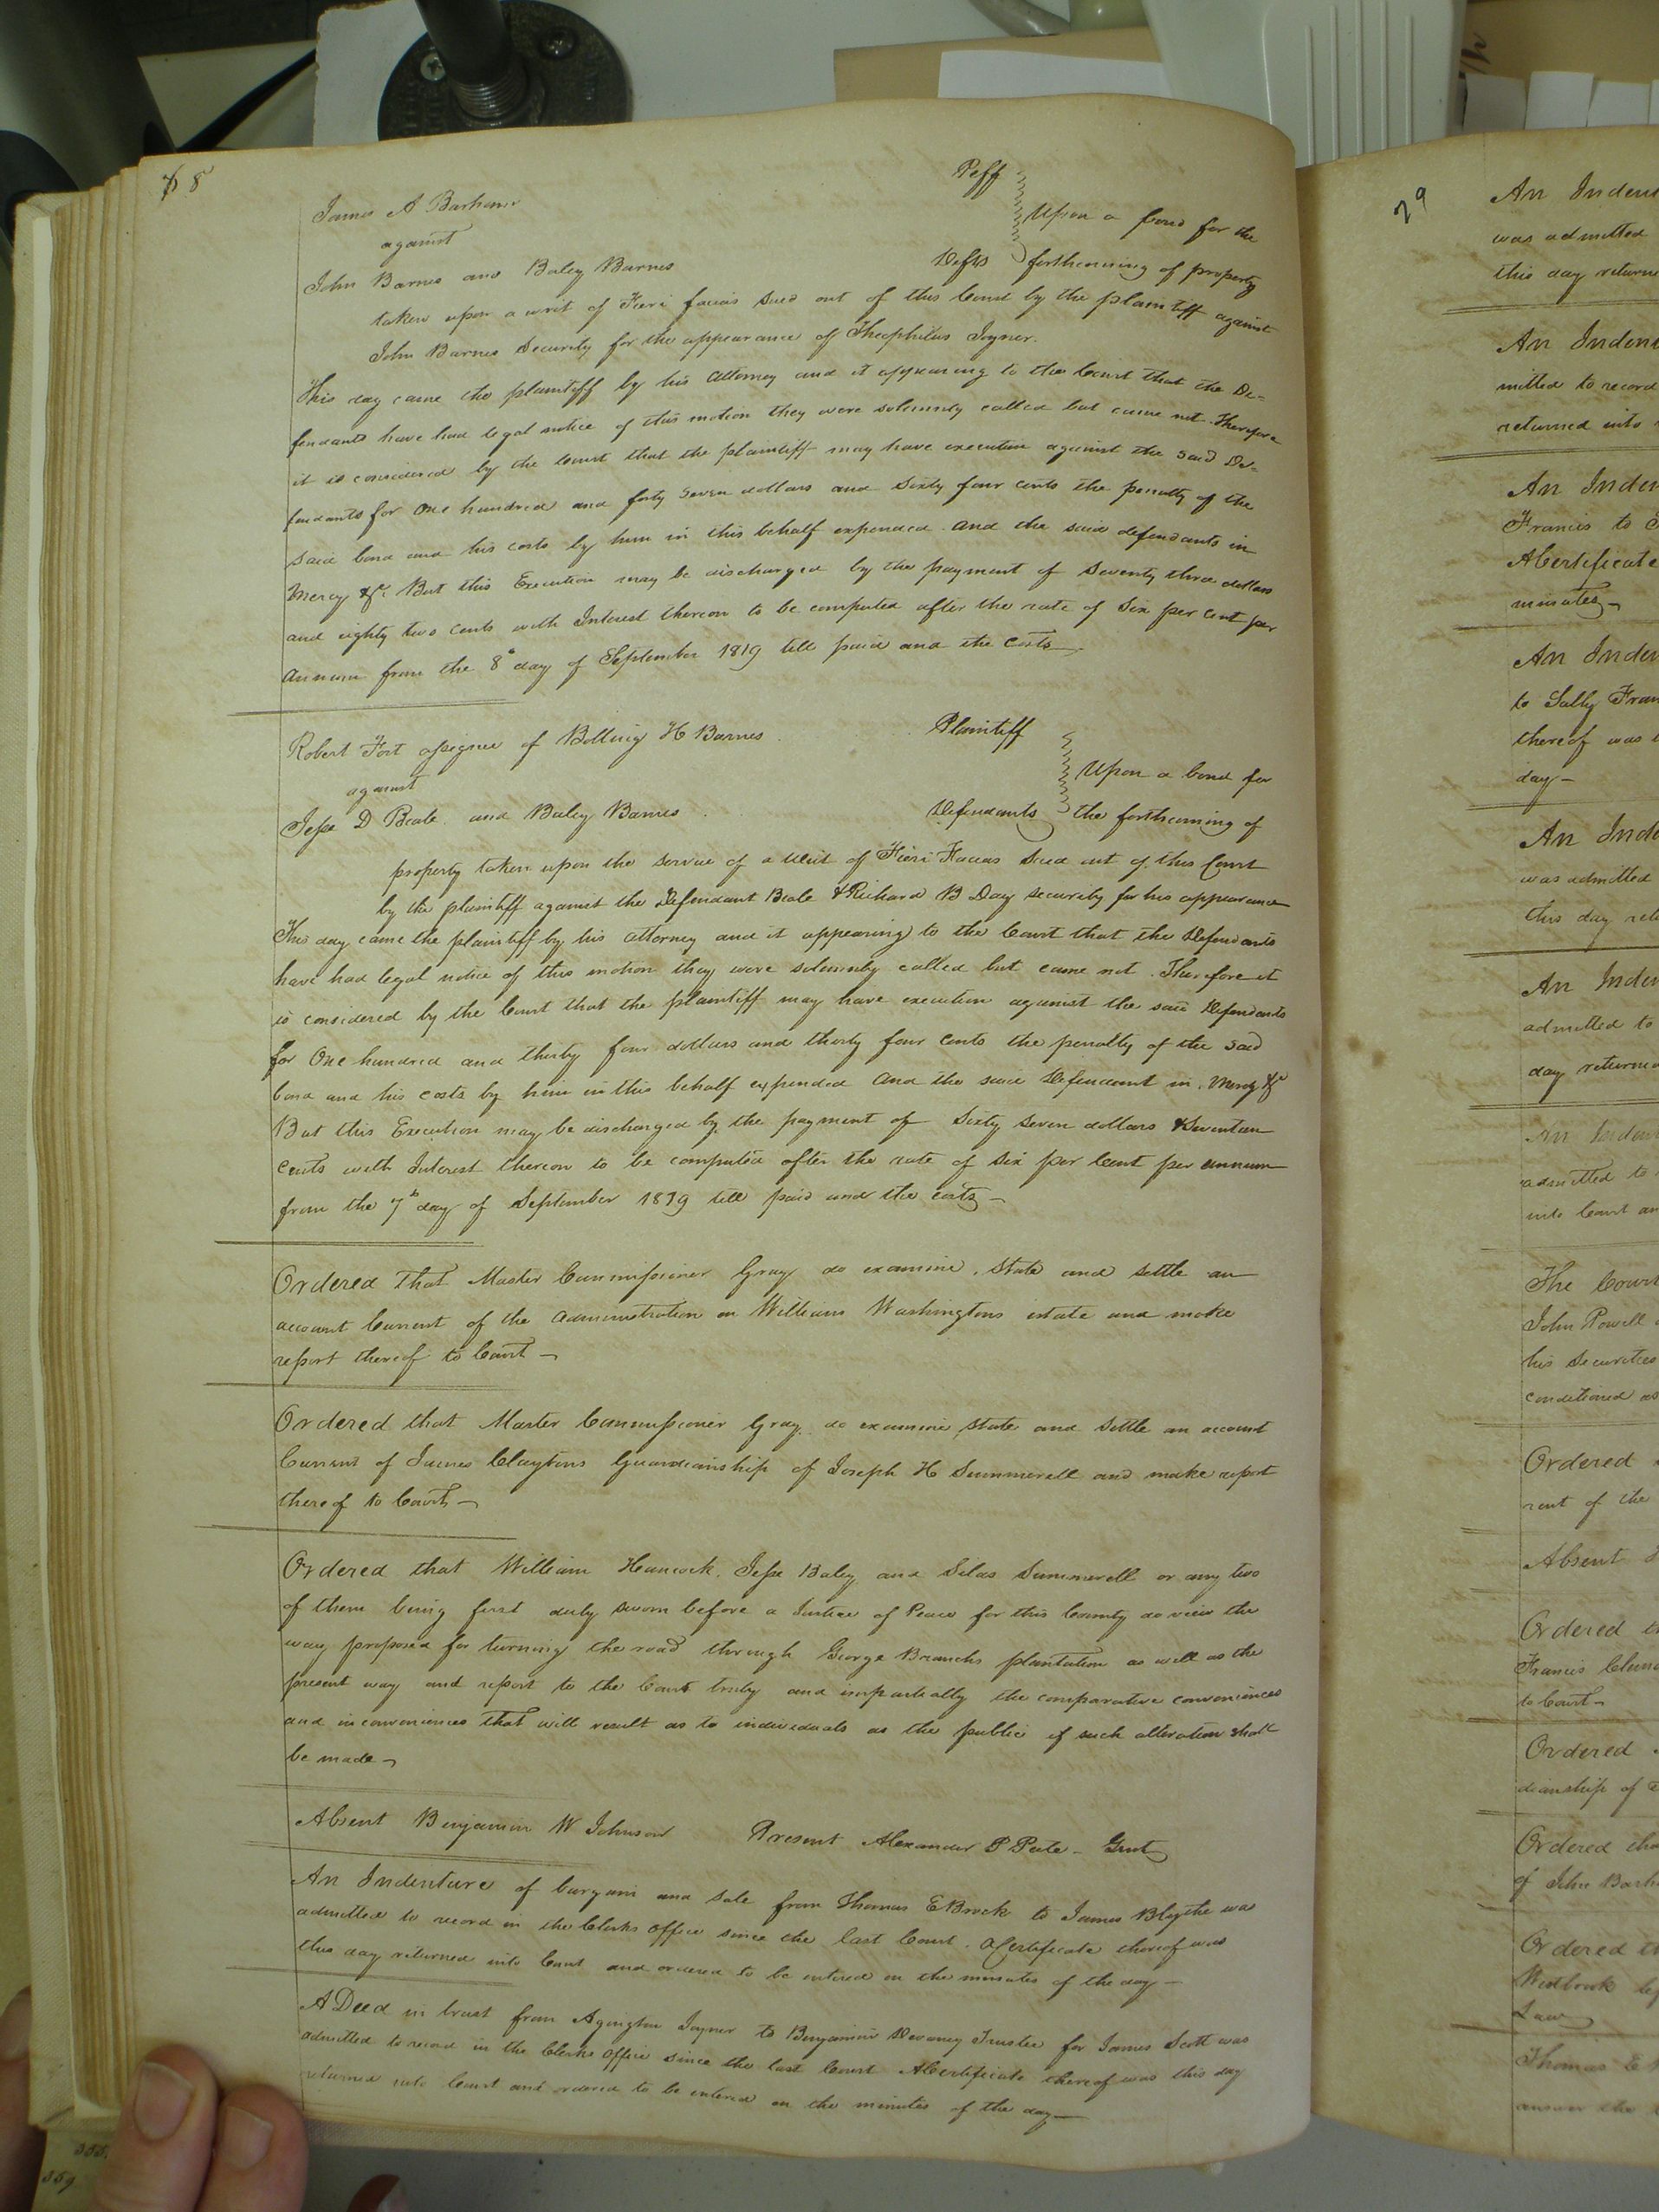 78
James A Barham Peff
against Upon a bond for the
John Barnes and Baley Barnes Defts forthcoming of property
taken upon a writ of Fieri facias sued out of this Court by the plaintiff against
John Barnes Security for the appearance of Theophilus Joyner.
This day came the plaintiff by his attorney and it appearing to the Court that the De=
fendants have had legal notice of this motion they were solemnly called but came not. Therefore
it is considered by the Court that the plaintiff may have execution against the said De=
fendants for One hundred and forty seven dollars and Sixty four cents the penalty of the
said bond and his costs by him in this behalf expended. And the said defendants in
Mercy &c. But this Execution may be discharged by the payment of Seventy three dollars
and eighty two cents with Interest thereon to be computed after the rate of Six per cent per
annum from the 8th day of September 1819 till paid and the Costs —
Robert Fort assignee of Bolling H Barnes Plaintiff
against Upon a bond for
Jesse D Beale and Baley Barnes Defendants the forthcoming of
property taken upon the service of a Writ of Fieri Facias Sued out of this Court
by the plaintiff against the Defendant Beale & Richard B Day security for his appearance
This day came the plaintiff by his attorney and it appearing to the Court that the Defendants
have had legal notice of this motion they were solemnly called but came not. Therefore it
is considered by the Court that the plaintiff may have execution against the said Defendants
for One hundred and thirty four dollars and thirty four Cents the penalty of the said
bond and his costs by him in this behalf expended And the said Defendant in Mercy &c
But this Execution may be discharged by the payment of Sixty Seven dollars & Seventeen
Cents with Interest thereon to be computed after the rate of six per Cent per annum
from the 7th day of September 1819 till paid and the costs —
Ordered That Master Commissioner Gray do examine, State and settle an
account Current of the administration on William Washingtons estate and make
report thereof to Court —
Ordered that Master Commissioner Gray do examine, State and Settle an account
Current of James Claytons Guardianship of Joseph H Summerell and make report
thereof to Court —
Ordered that William Hancock, Jesse Baley and Silas Summerell or any two
of them being first duly sworn before a Justice of Peace for this County do view the
way proposed for turning the road through George Branchs plantation as well as the
present way and report to the Court truly and impartially the comparative conveniences
and inconveniences that will result as to individuals as the public if such alteration shall
be made —
Absent Benjamin W Johnson Present Alexander P Peete — Gent
An Indenture of bargain and sale from Thomas E Brock to James Blythe was
admitted to record in the Clerks Office since the last Court. A Certificate thereof was
this day returned into Court and ordered to be entered in the minutes of the day —
A Deed in trust from Joyner to Benjamin Devaney Trustee for James Scott was
admitted to record in the Clerks Office since the last Court A Certificate thereof was this day
returned into Court and ordered to be entered on the minutes of the day —
79
An Inden
was admitted
this day return
An Inden
mitted to record
returned into
An Inden
Francis to
A Certificate
minutes —
An Inden
to Sally Fran
thereof was
day —
An Inde
was admitted
this day ret
An Inden
admitted to
day returned
An Inden
admitted to
into Court an
The Court
John Powell
his Securities
conditioned as
Ordered
rent of the
Absent
Ordered th
Francis
to Court —
Ordered
dianship of
Ordered tha
of John Barh
Ordered th
Westbrook
Law
Thomas E
answer the
359